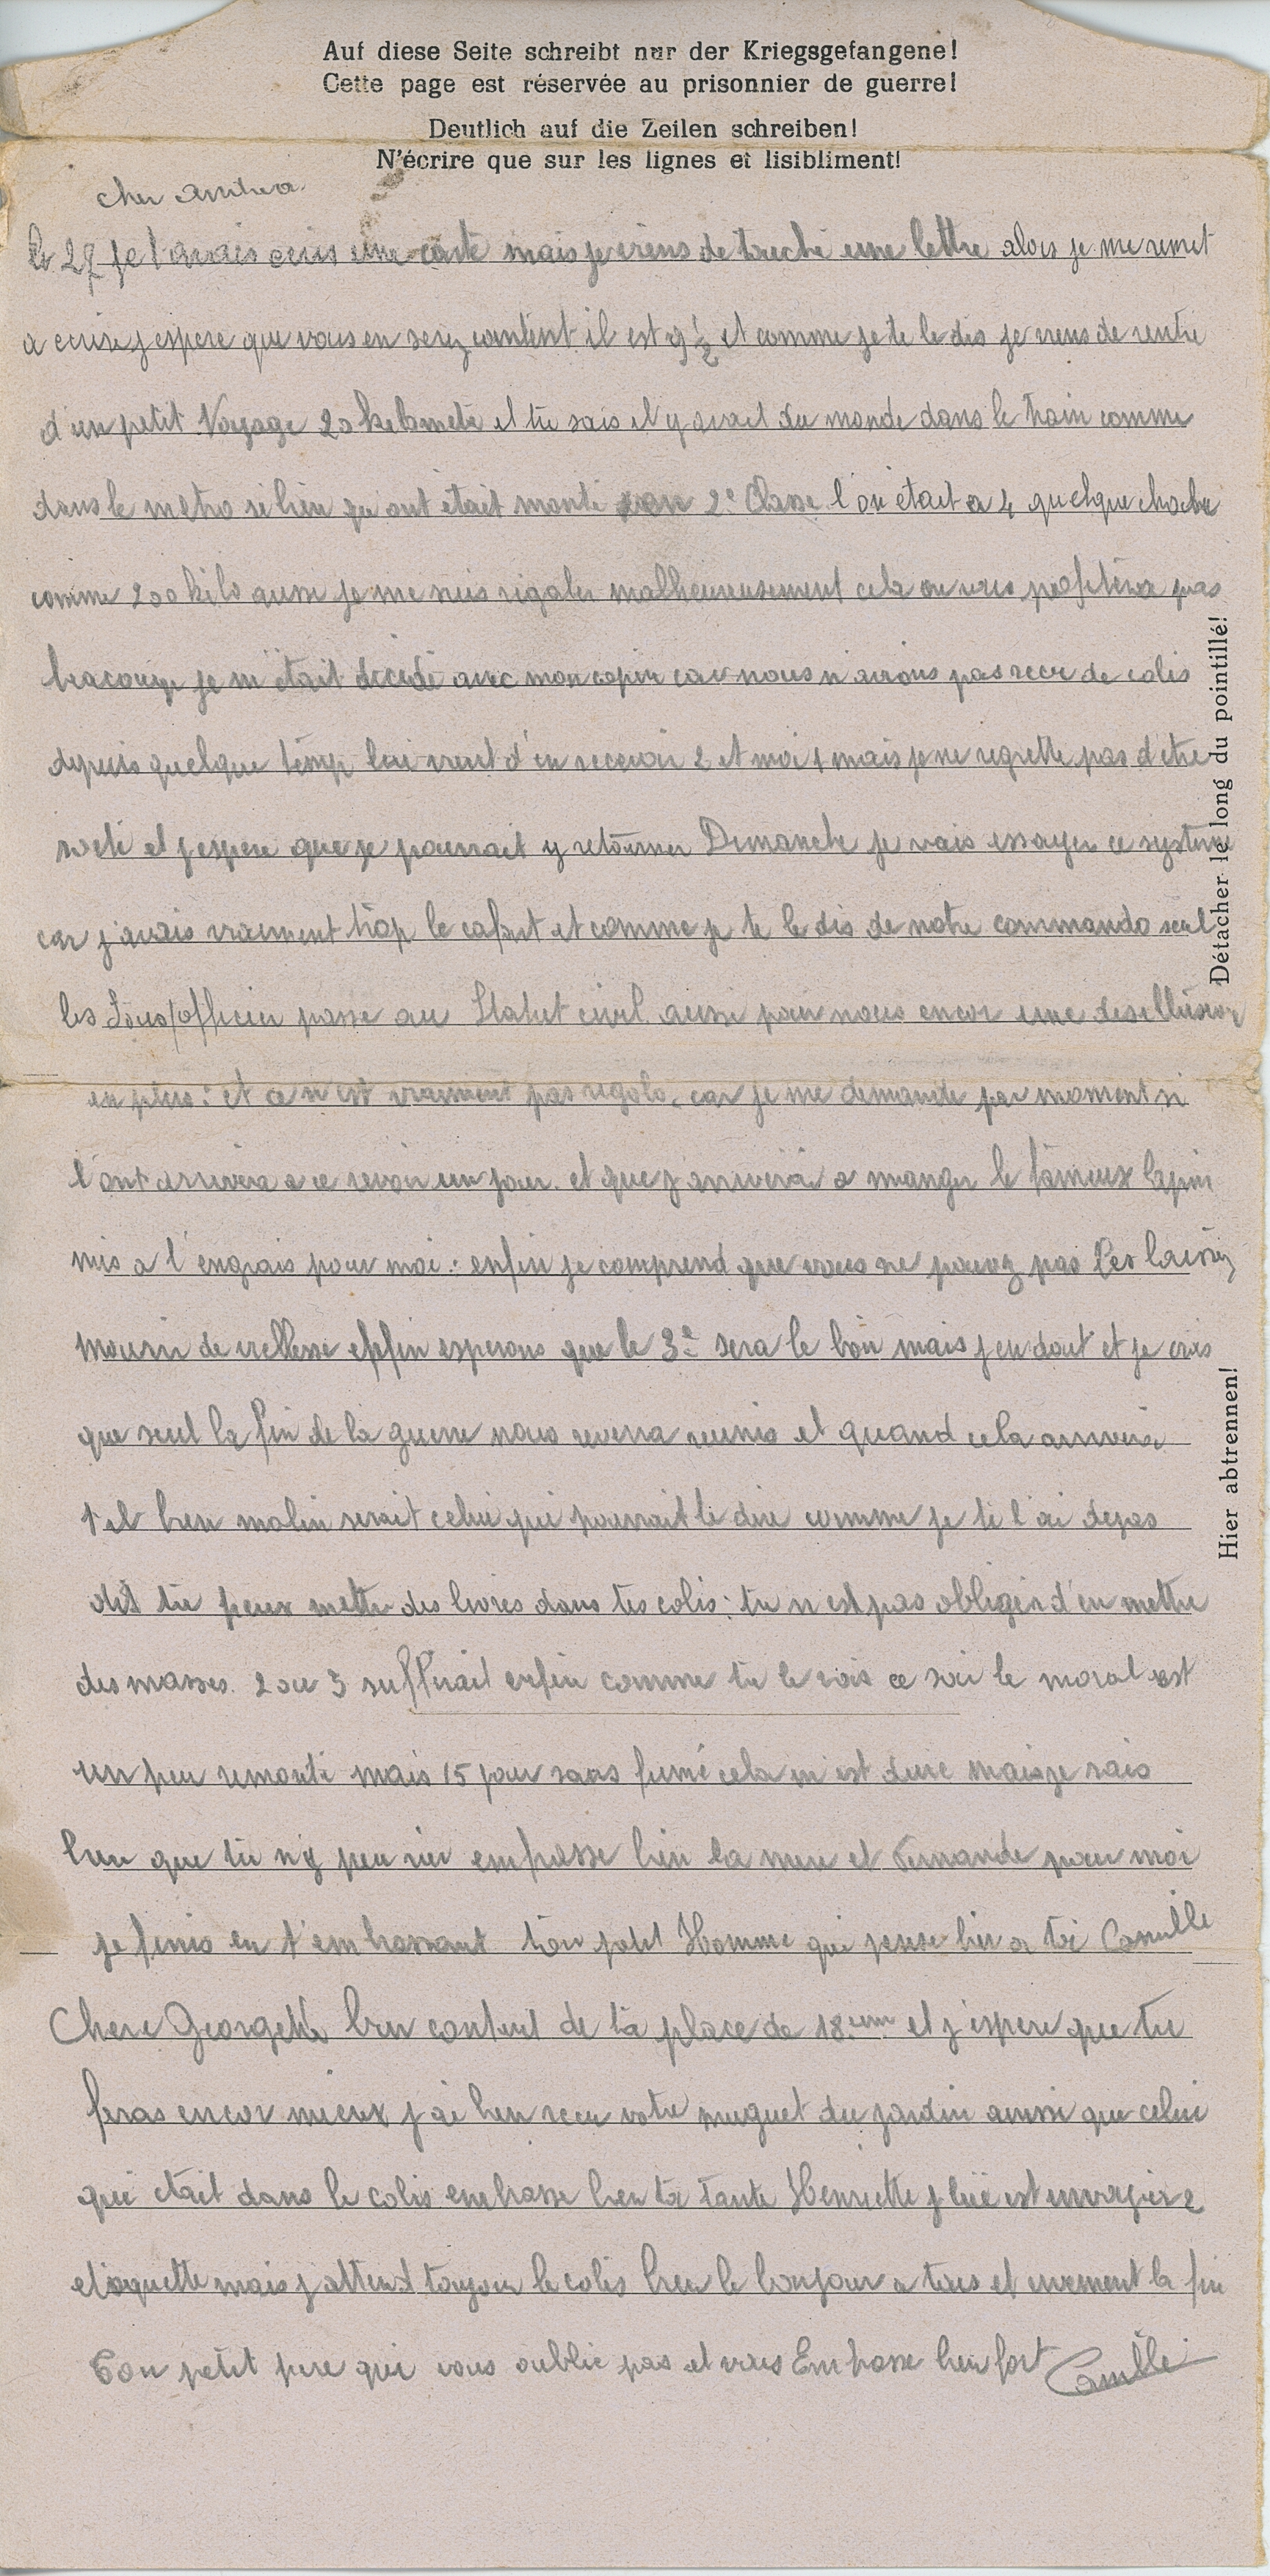 Auf diese Seite schreibt nur der Kriegsgefangene!
Cette page est réservée au prisonnier de guerre!
Deutlich auf die Zeilen schreiben!
N'écrire que sur les lignes et lisibliment!
cher
le 27 je t'avais ecris une carte mais je viens de touche une lettre alors je me remet
a ecrire j espere que vous en serez content il est 9 1/2 et comme je te le dis je viens de rentre
d'un petit Voyage 20 kilometre et tu sais il y avait du monde dans le train comme
dans le metro si bien qu ont etait monté en 2e Classe l'on était a 4 quelque chose
comme 200 kilo aussi je me suis regaler malheureusement cela ne vous profitera pas
beaucoup je m'était décidé avec mon copin car nous n avions pas recu de colis
depuis quelque temp lui vient d'en recevoir 2 et moi 1 mais je ne regrette pas d etre
sorti et j espere que je pourrait y retourner Dimanche je vais essayer ce systeme
car j'avais vraiment trop le cafart et comme je te le dis de notre commando seul
les Sous/officier passe au Statut civil aussi pour nous encor une desillusion
en plus : et ce n'est vraiment pas rigolo, car je me demande par moment si
l'ont arrivera a ce revoir un jour. et que j'arriverai a manger le fameux lapin
mis a l'engrais pour moi : enfin je comprend que vous ne pouvez pas les laisser
mourir de viellesse enfin esperons que le 3e sera le bon mais j en dout et je crois
que seul la fin de la guerre nous reverra reunis et quand cela arrivera
t il bien malin serait celui qui pourrait le dire comme je te l'ai dejas
dit tu peux mettre des livres dans tes colis : tu n est pas obliger d'en mettre
des masses. 2 ou 3 suffirait enfin comme tu le vois ce soir le moral est
un peu remonté mais 15 jour sans fumé cela m'est dure mais je sais
bien que tu n'y peu rien embrasse bien la mere et Fernande pour moi
je finis en t'embrassant ton petit Homme qui pense bien a toi Camille
Chere Georgette bien content de ta place de 18eme et j'espere que tu
feras encor mieux j ai bien recu votre muguet du jardin ainsi que celui
qui etait dans le colis embrasse bien ta tante Henriette j lui est envoyer 2
etiquette mais j attend toujour le colis bien le bonjour a tous et vivement la fin
Ton petit pere qui vous oublie pas et vous Embrasse bien fort Camille
Détacher le long du pointillé!
Hier abtrennen!